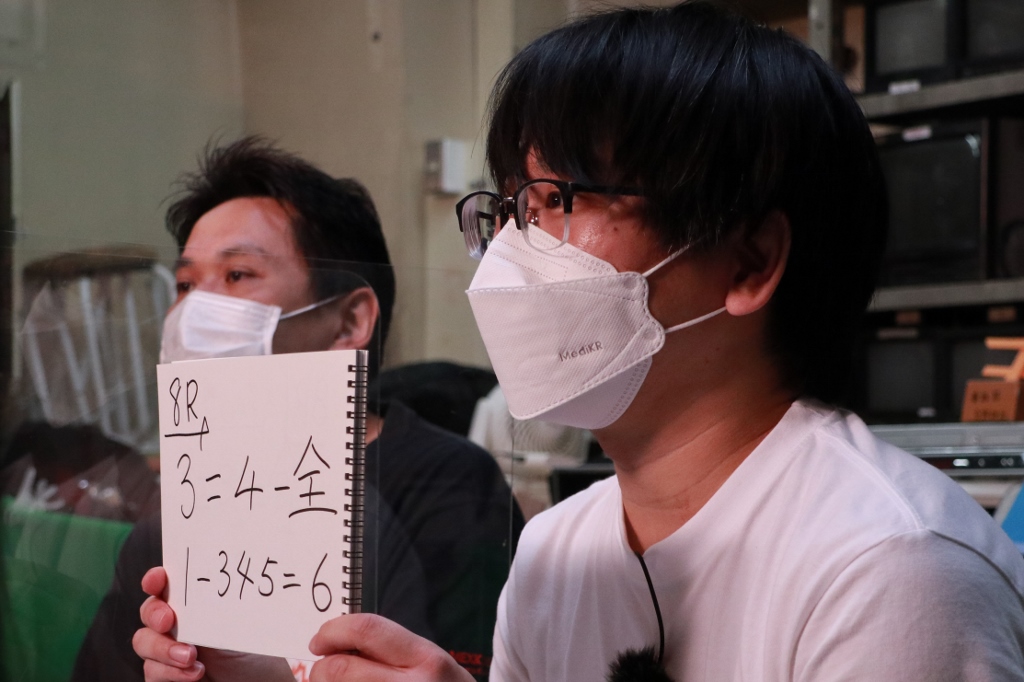 8R
3=4-全
1-345=6
MediKR